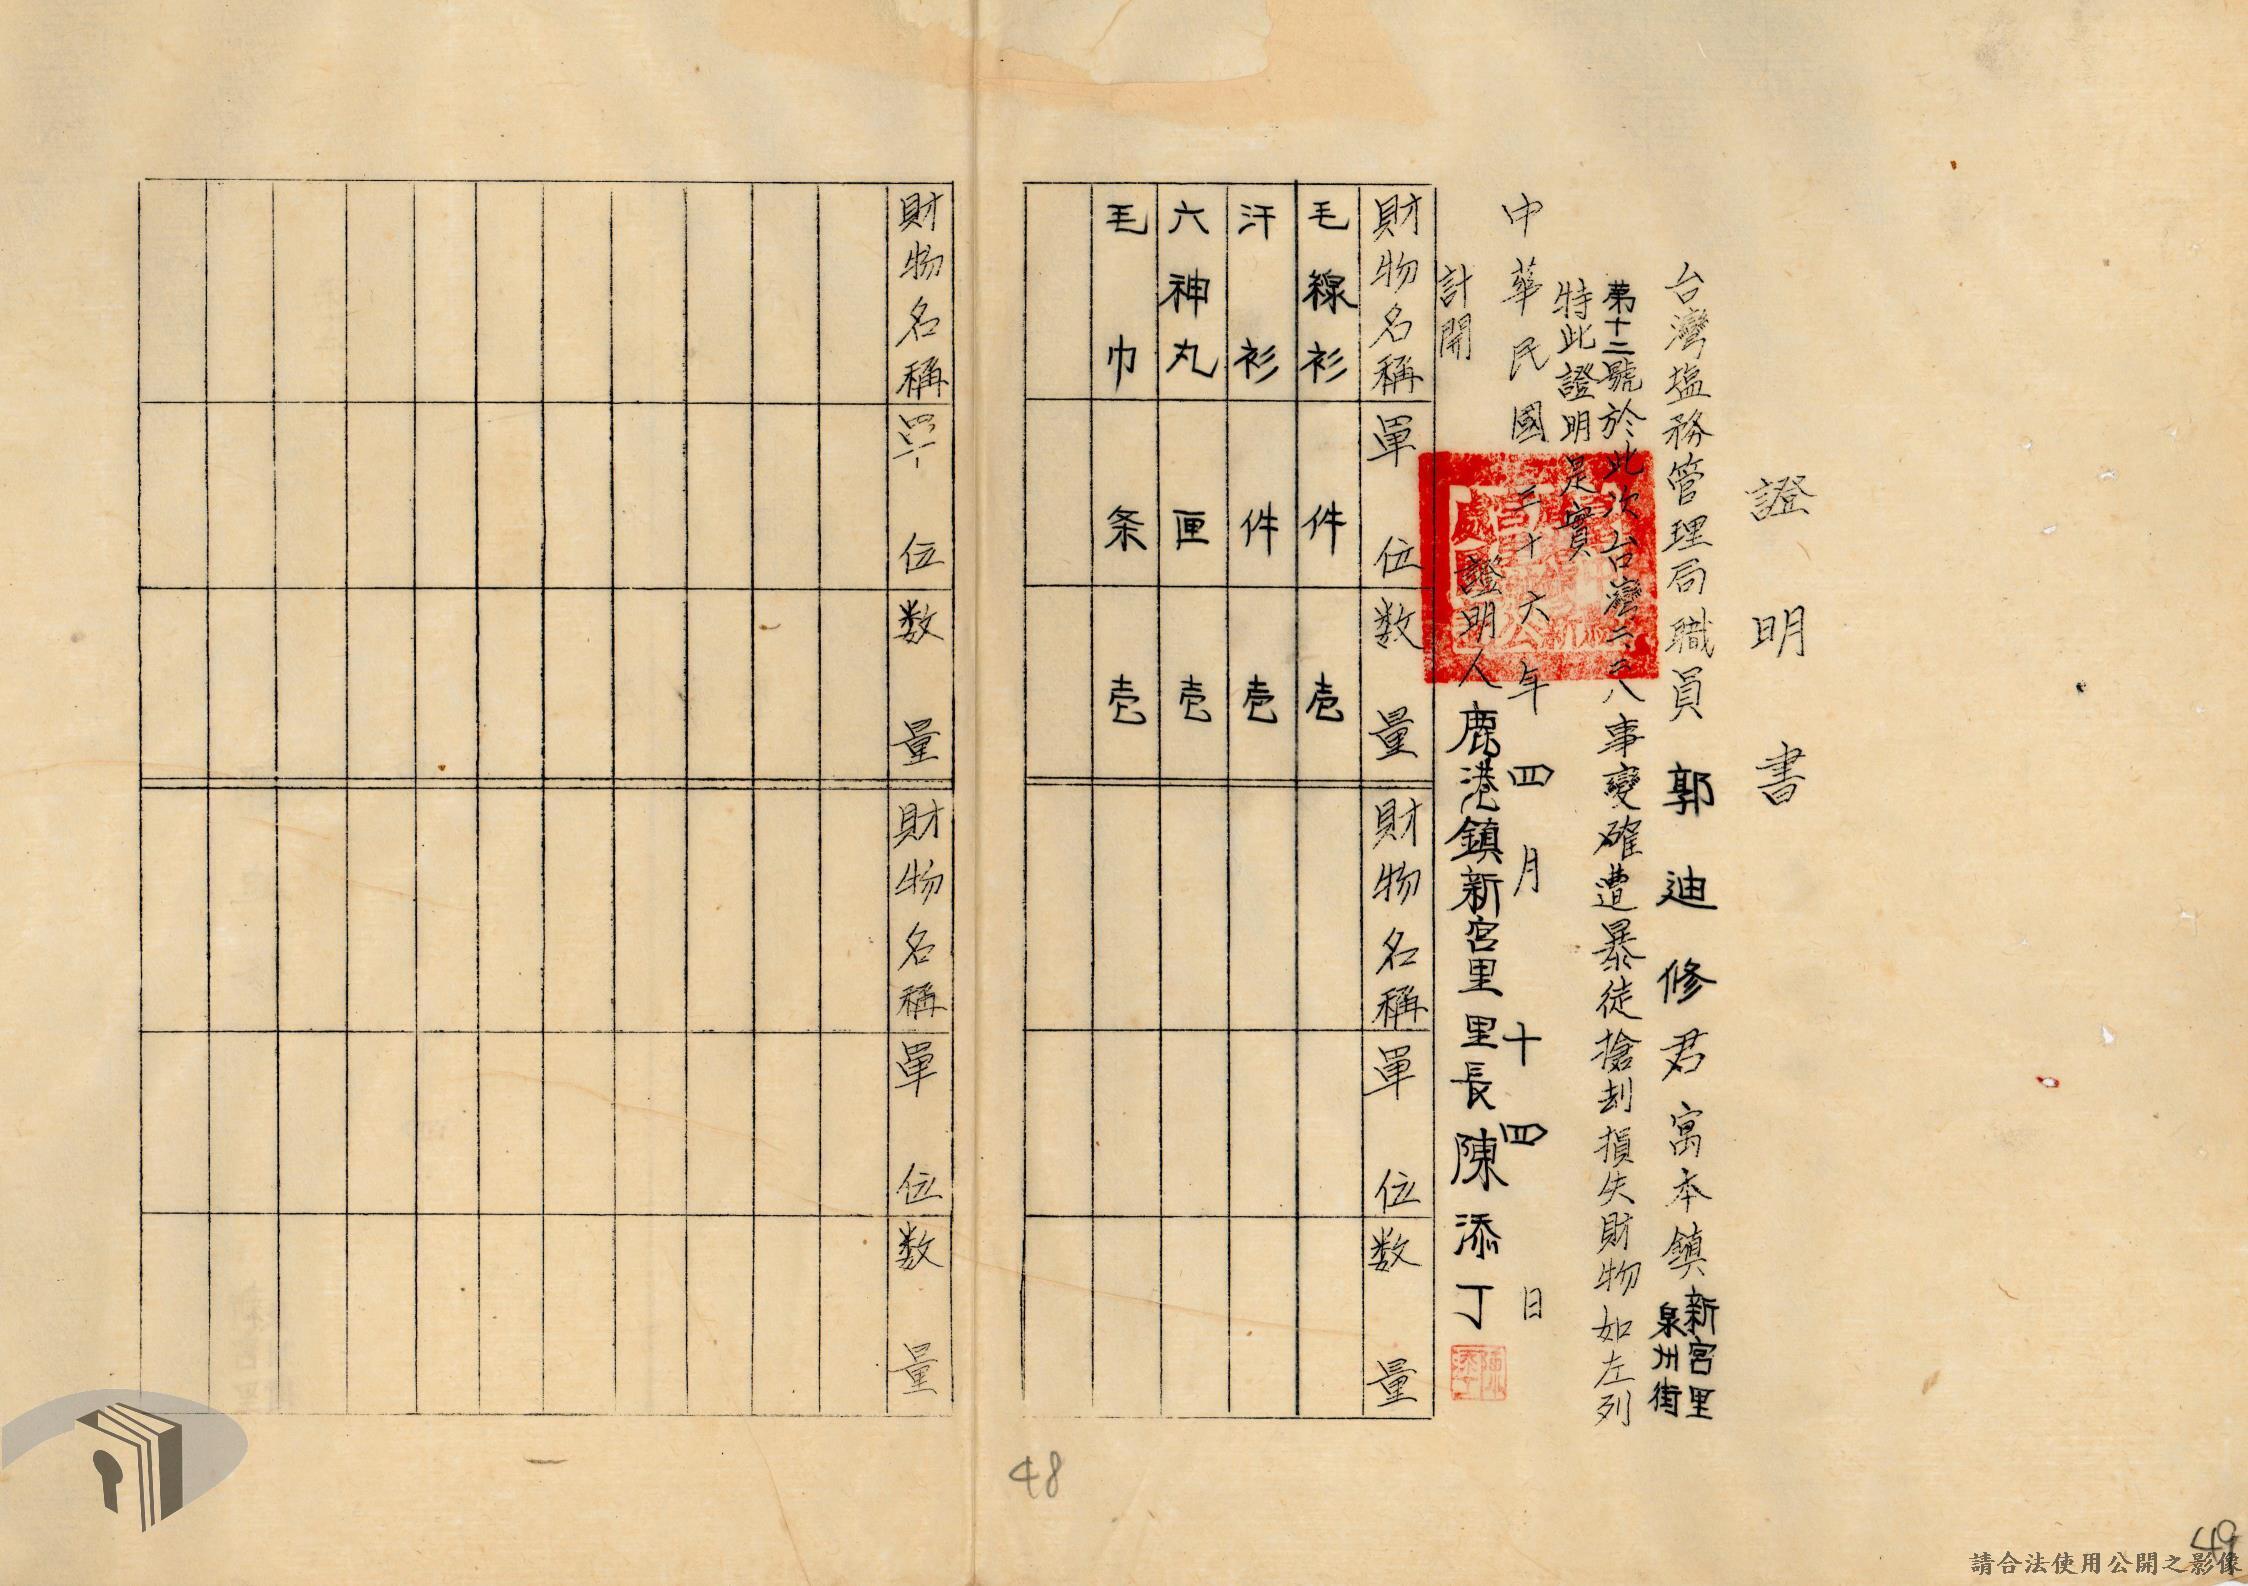 證明書
台灣塩務管理局職員郭迪修君寓本鎮新宮里
泉州街
第十二號於此次台灣二二八事變確遭暴徒搶刦損失財物如左列
特此證明是實
中華民國三十六年四月十四日
證明人鹿港鎮新宮里里長陳添丁
陳添丁
計開
財物名稱 單位 数量 財物名稱 單位 数量
毛線衫 件 壱
汗衫 件 壱
六神丸 匣 壱
毛巾 条 壱
財物名稱 單位 数量 財物名稱 單位 数量
48
49
請合法使用公開之影像